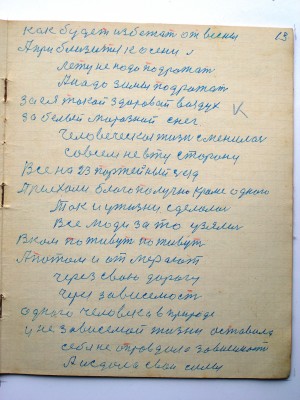 13
как будет избежат от весны
А приблизител к осени я
лету не подо подрожат
А надо зимы подрожат
за ея такой здоровай воздух
за белый морозной снег
Человеческая жизн сменилас
совсем не в ту сторону
Все на 23 партейный съезд
Приехали благополучно кроме одного
Так и у жизни сделалос
Все люди за то
В ком по живут по живут
А потом и от мерают
через свою дорогу
Через зависемост
одного человека в природе
и не зависемой жизни оставила
себя не оправдило зависемост
А свои силы